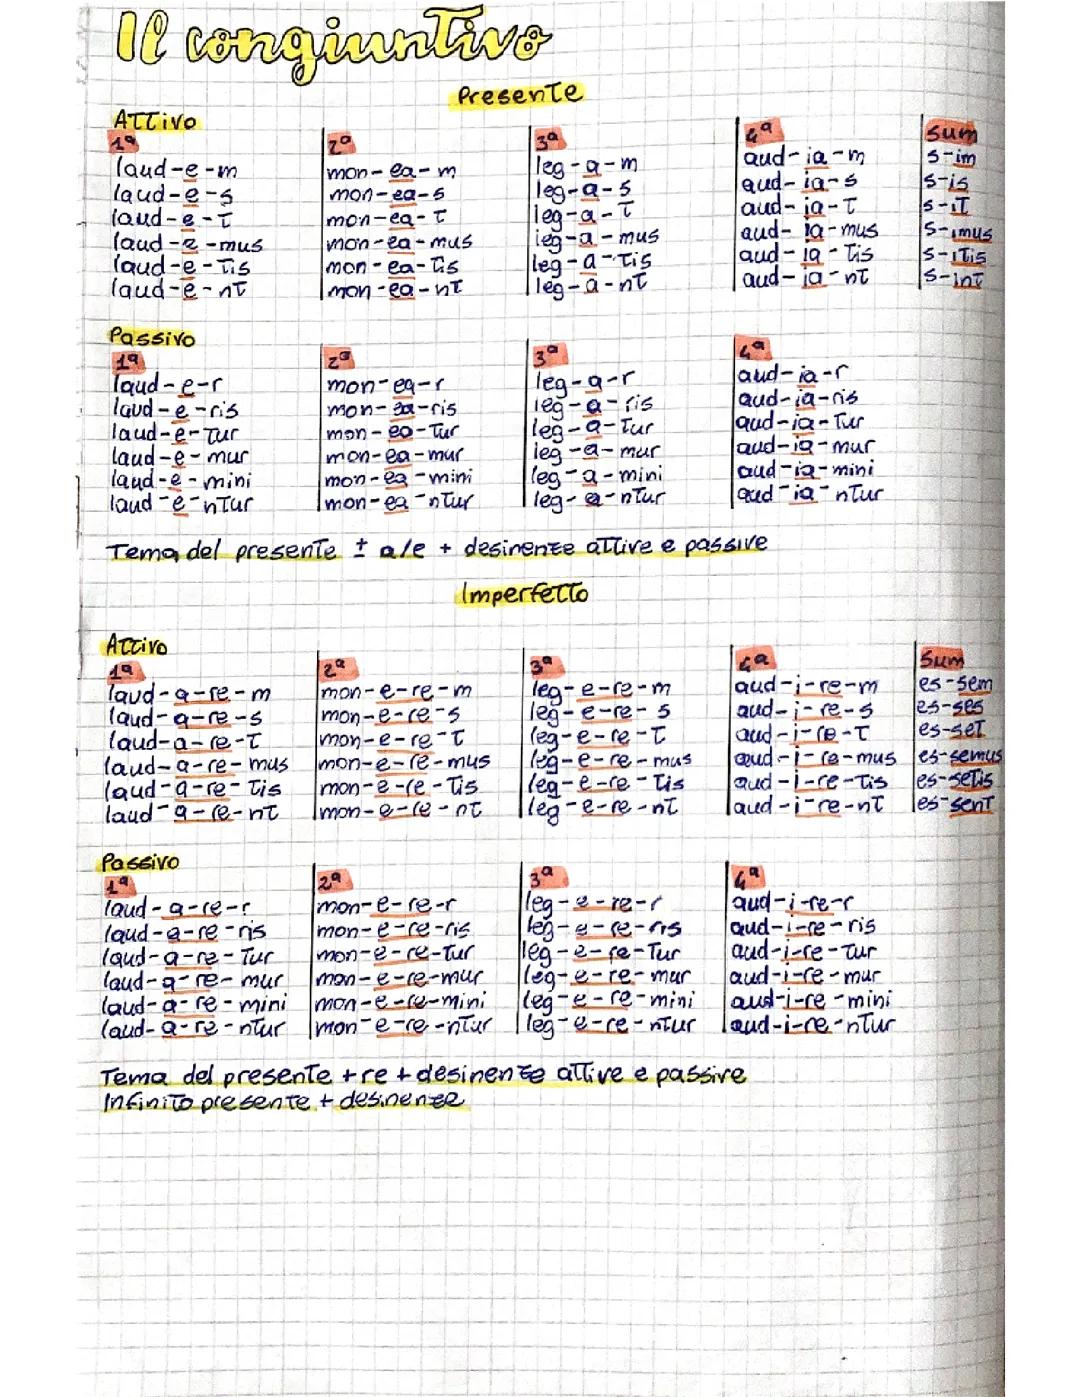 Il congiuntivo
Presente
Attivo
1ª 2ª 3ª 4ª Sum
laud-e-m mon-ea-m leg-a-m aud-ia-m s-im
laud-e-s mon-ea-s leg-a-s aud-ia-s s-is
laud-e-t mon-ea-t leg-a-t aud-ia-t s-it
laud-e-mus mon-ea-mus leg-a-mus aud-ia-mus s-imus
laud-e-tis mon-ea-tis leg-a-tis aud-ia-tis s-itis
laud-e-nt mon-ea-nt leg-a-nt aud-ia-nt s-int
Passivo
1ª 2ª 3ª 4ª
laud-e-r mon-ea-r leg-a-r aud-ia-r
laud-e-ris mon-ea-ris leg-a-ris aud-ia-ris
laud-e-tur mon-ea-tur leg-a-tur aud-ia-tur
laud-e-mur mon-ea-mur leg-a-mur aud-ia-mur
laud-e-mini mon-ea-mini leg-a-mini aud-ia-mini
laud-e-ntur mon-ea-ntur leg-a-ntur aud-ia-ntur
Tema del presente ± a/e + desinenze attive e passive
Imperfetto
Attivo
1ª 2ª 3ª 4ª Sum
laud-a-re-m mon-e-re-m leg-e-re-m aud-i-re-m es-sem
laud-a-re-s mon-e-re-s leg-e-re-s aud-i-re-s es-ses
laud-a-re-t mon-e-re-t leg-e-re-t aud-i-re-t es-set
laud-a-re-mus mon-e-re-mus leg-e-re-mus aud-i-re-mus es-semus
laud-a-re-tis mon-e-re-tis leg-e-re-tis aud-i-re-tis es-setis
laud-a-re-nt mon-e-re-nt leg-e-re-nt aud-i-re-nt es-sent
Passivo
1ª 2ª 3ª 4ª
laud-a-re-r mon-e-re-r leg-e-re-r aud-i-re-r
laud-a-re-ris mon-e-re-ris leg-e-re-ris aud-i-re-ris
laud-a-re-tur mon-e-re-tur leg-e-re-tur aud-i-re-tur
laud-a-re-mur mon-e-re-mur leg-e-re-mur aud-i-re-mur
laud-a-re-mini mon-e-re-mini leg-e-re-mini aud-i-re-mini
laud-a-re-ntur mon-e-re-ntur leg-e-re-ntur aud-i-re-ntur
Tema del presente + re + desinenze attive e passive
Infinito presente + desinenze